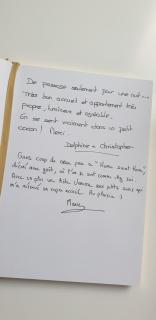 De passage seulement pour une nuit...
Très bon accueil et appartement très
propre, lumineux et agréable.
On se sent vraiment dans un petit
cocon ! Merci.
Delphine & Christopher
Gros coup de cœur pour ce "Home sweet Home",
décoré avec goût, où l'on se sent comme chez soi.
Avec en plus une hôte aux petits soins qui
m'a réservé un super accueil. Au plaisir :)